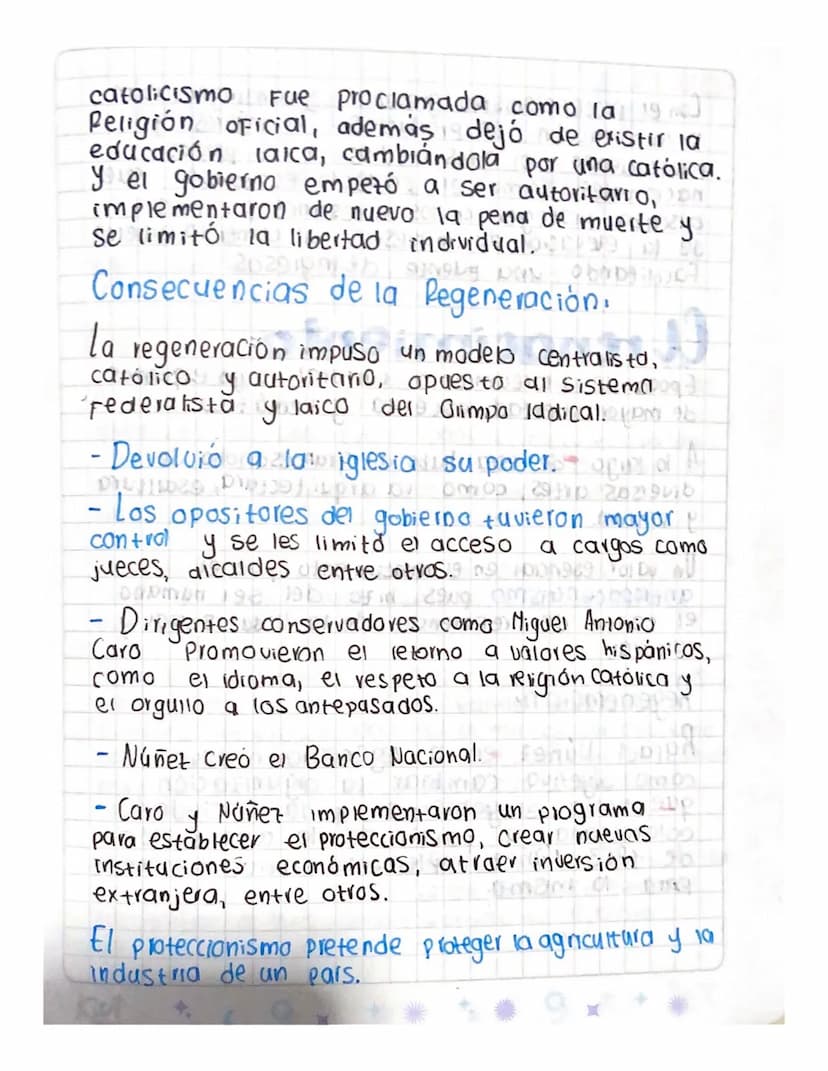 catolicismo Fue proclamada como la
Religión oficial, además dejó de existir la
educación laica, cambiándola por una católica.
y el gobierno empezó a ser autoritario,
implementaron de nuevo la pena de muerte y
se limitó la libertad individual.
Consecuencias de la Regeneración:
La regeneración impuso un modelo centralista,
católico y autoritario, opuesto al sistema
federalista y laico del Olimpo radical.
- Devolvió a la iglesia su poder.
- Los opositores del gobierno tuvieron mayor
control y se les limitó el acceso a cargos como
jueces, alcaldes entre otros.
- Dirigentes conservadores como Miguel Antonio
Caro Promovieron el retorno a valores hispánicos,
como el idioma, el respeto a la religión católica y
el orgullo a los antepasados.
- Núñez creó el Banco Nacional.
- Caro y Núñez implementaron un programa
para establecer el proteccionismo, crear nuevas
instituciones económicas, atraer inversión
extranjera, entre otros.
El proteccionismo pretende proteger la agricultura y la
industria de un país.